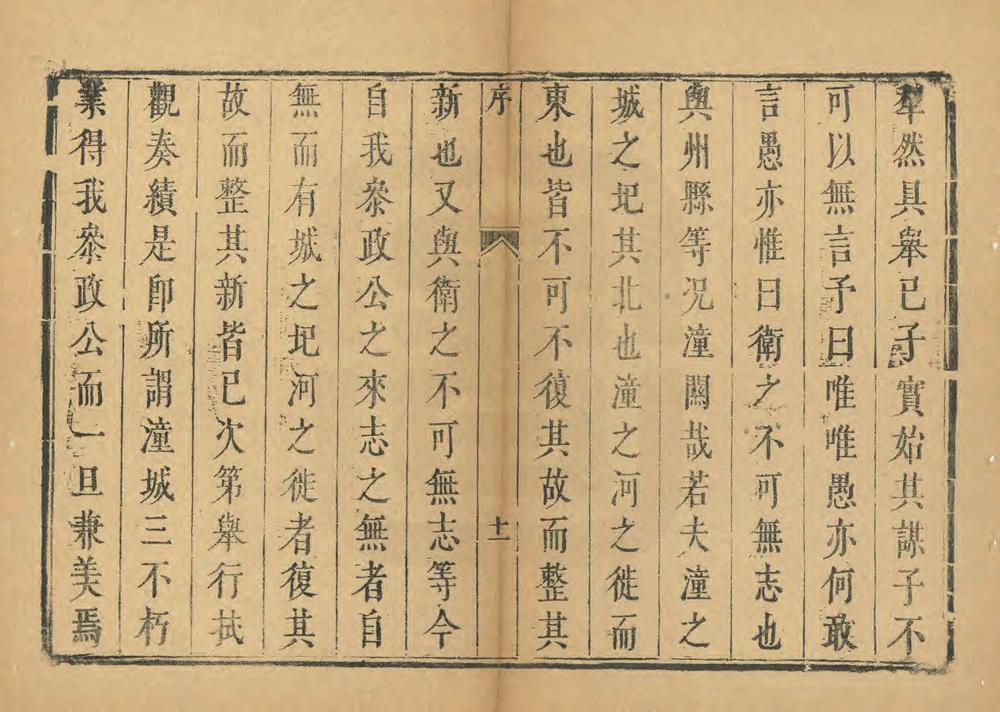 犂然具舉已子實始其謀子不
可以無言予曰唯唯愚亦何敢
言愚亦惟曰衛之不可無志也
與州縣等况潼關哉若夫潼之
城之圯其北也潼之河之徙而
東也皆不可不復其故而整其
序
十一
新也又與衛之不可無志等今
自我叅政公之來志之無者自
無而有城之圯河之徙者復其
故而整其新皆已次第舉行拭
觀奏績是卽所謂潼城三不朽
業得我叅政公而一旦兼美焉